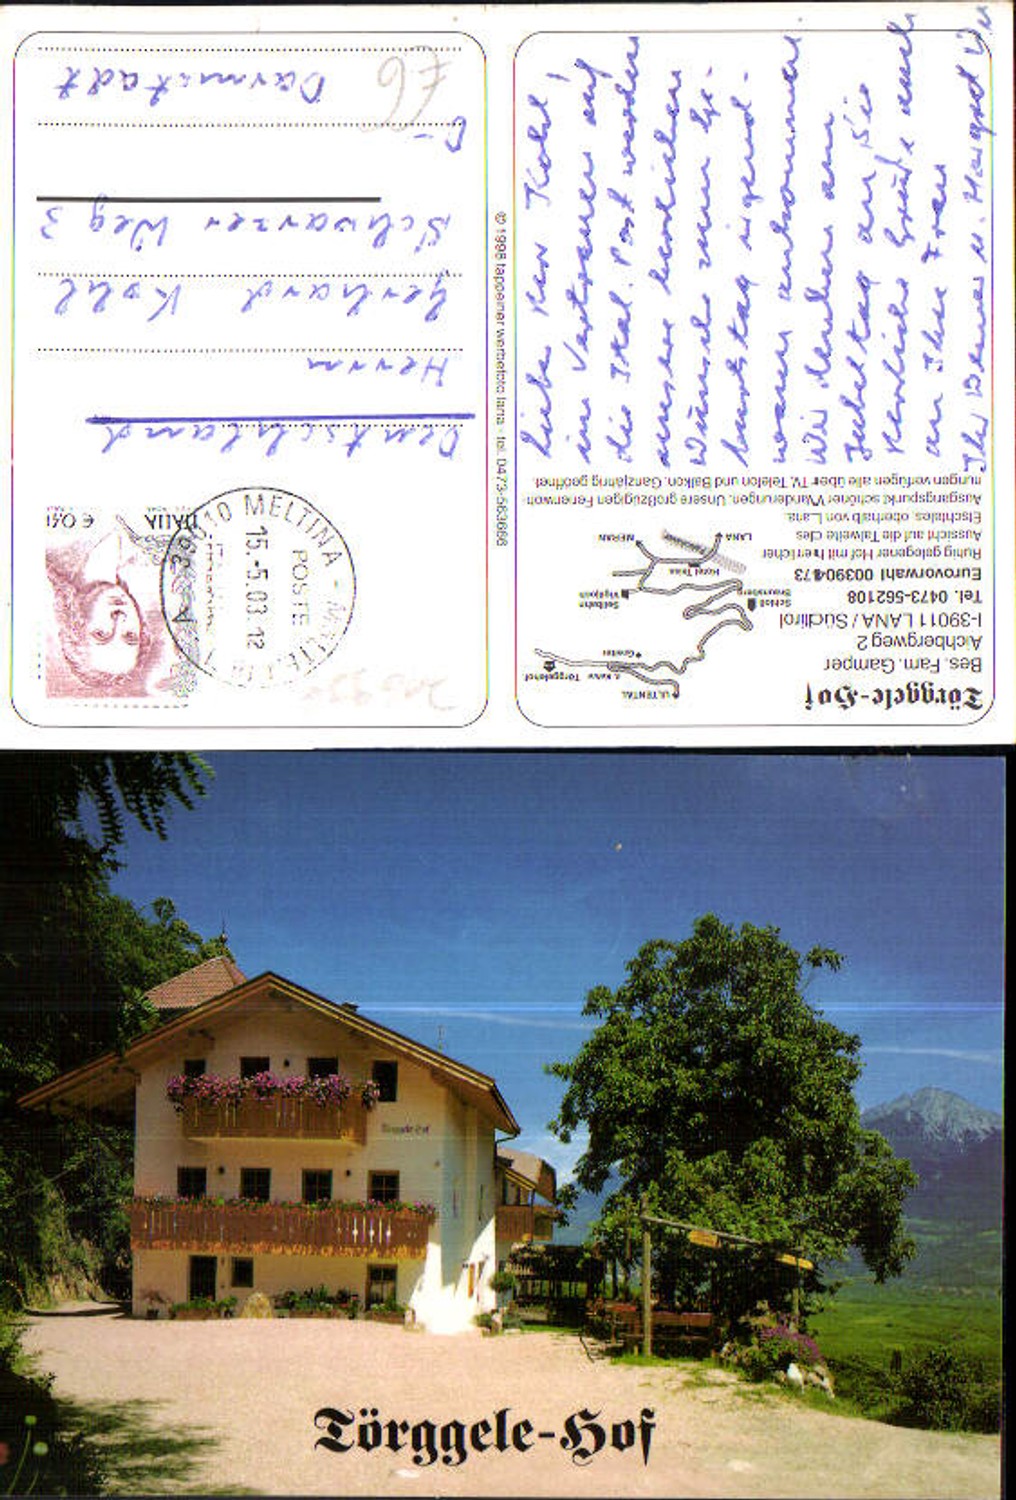 Törggele-Hof
Bes. Fam. Gamper
Aichbergweg 2
I-39011 LANA / Südtirol
Tel. 0473-562108
Eurovorwahl 00390473
Ruhig gelegener Hof mit herrlicher
Aussicht auf die Talweite des
Etschtales, oberhalb von Lana.
Ausgangspunkt schöner Wanderungen. Unsere großzügigen Ferienwoh-
nungen verfügen alle über TV, Telefon und Balkon. Ganzjährig geöffnet.
ULTENTAL
Törggelehof
Schloß Braunsberg
Seilbahn Vigiljoch
Hotel Teiss
LANA
MERAN
Lieber Herr Kohl!
im Vertrauen auf
die Ital. Post werden
unsere herzlichen
Wünsche zum Ge-
burtstag irgend-
wann ankommen.
Wir denken am
Jubeltag an Sie
Herzliche Grüße auch
an Ihre Frau
Ihr Werner u. Margot
© 1998 tappeiner werbefoto lana - tel. 0473-563666
ITALIA
€ 0,41
39010 MELTINA
POSTE
15-5.03.12
Deutschland
Herrn
Gerhard Kohl
Schwarzer Weg 3
D-
Darmstadt
E6
Törggele-Hof
Törggele-Hof